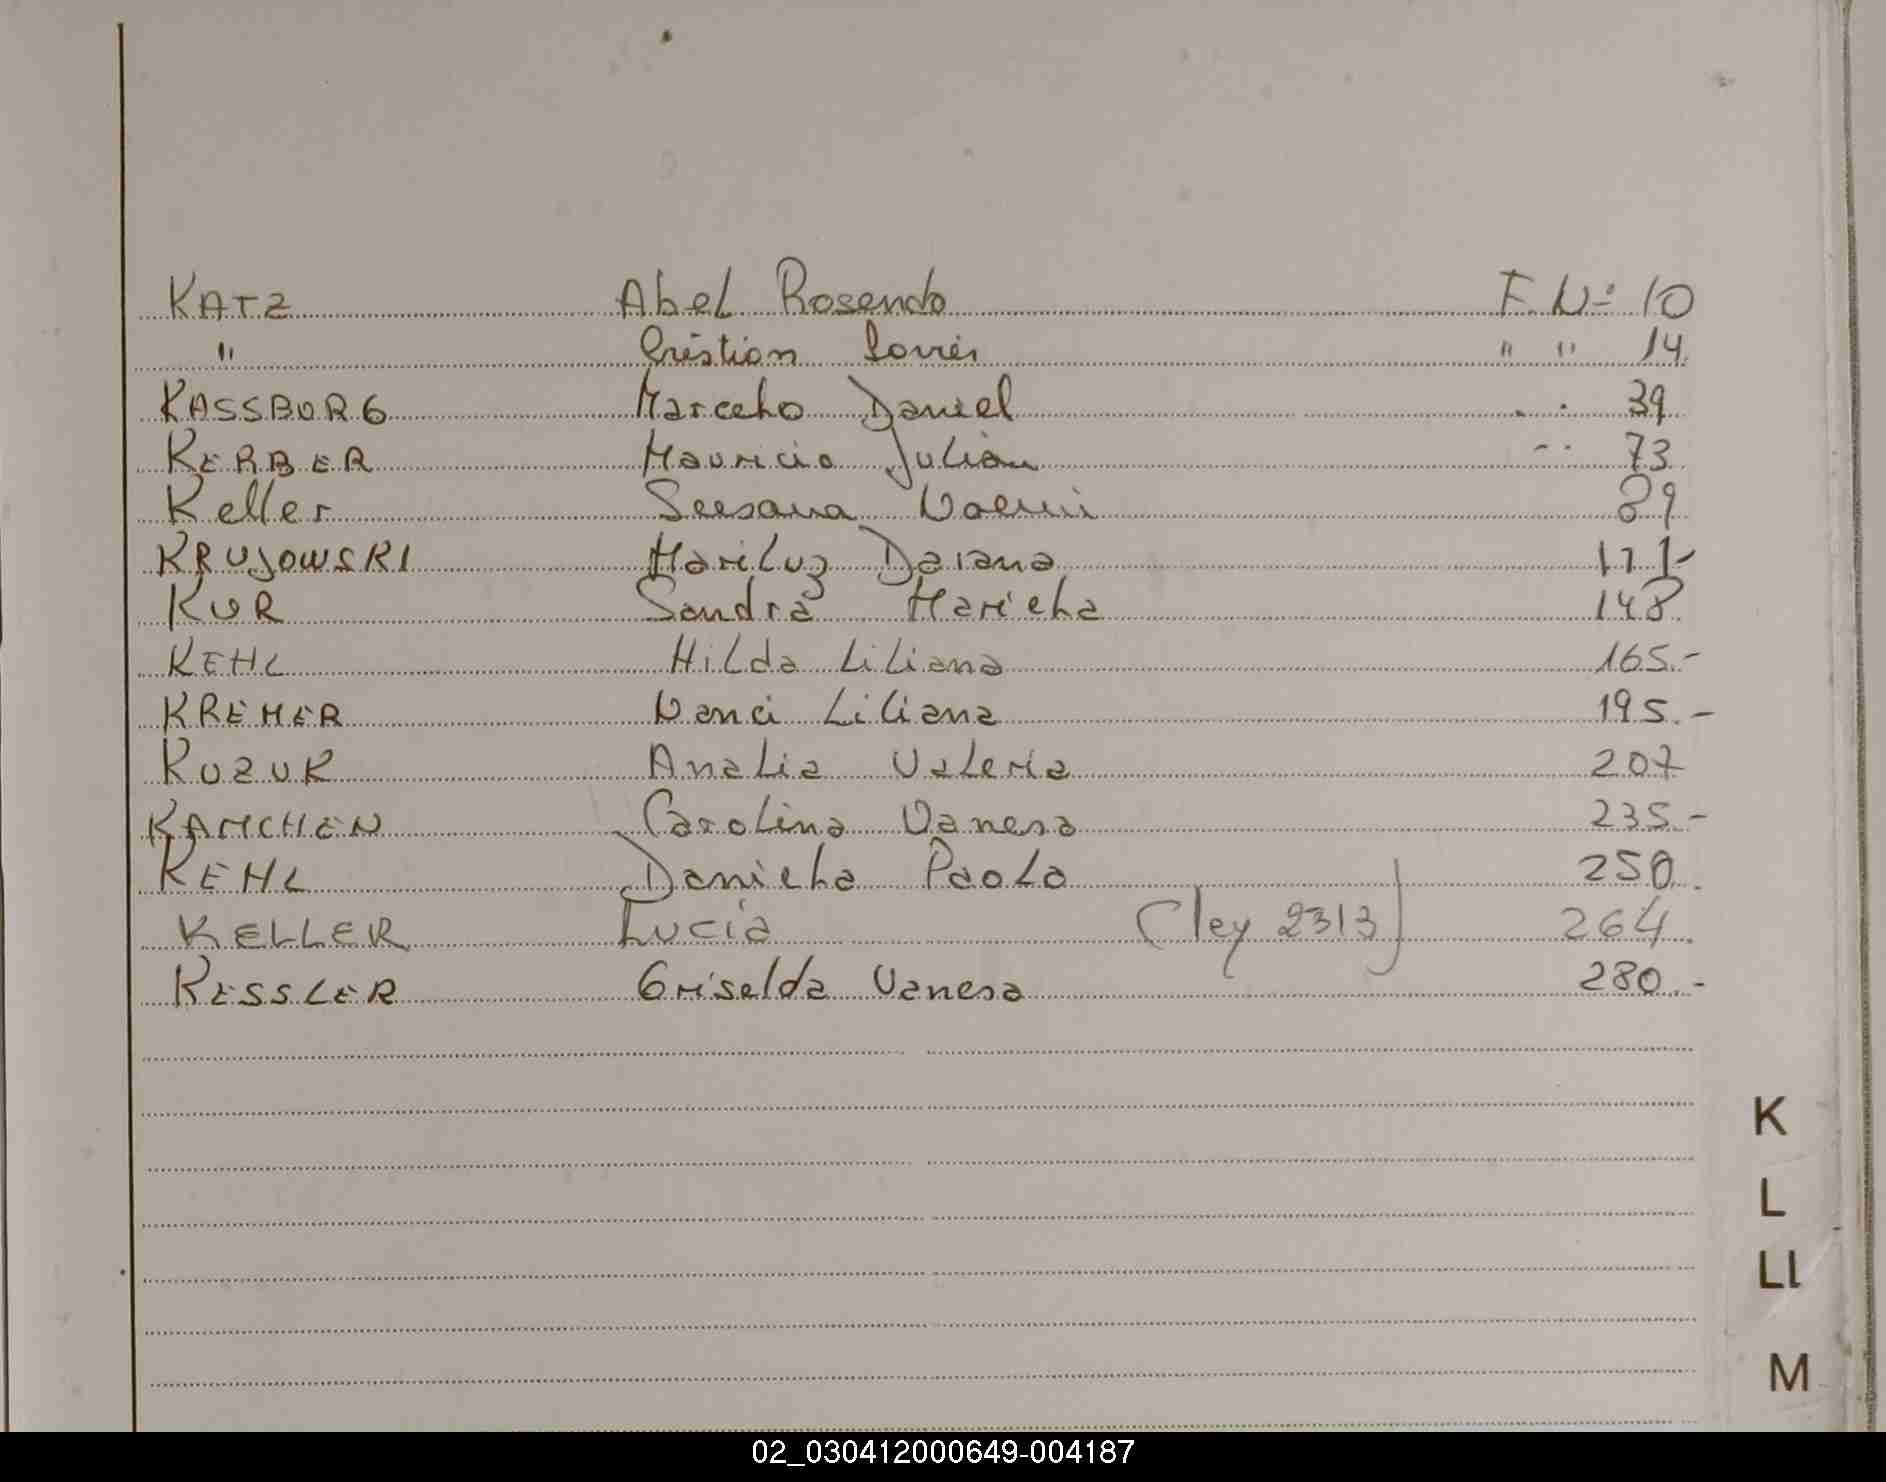 KATZ Abel Rosendo F. Nº 10
" Cristian Javier " " 14
KASSBORG Marcelo Daniel . . 39
KERBER Mauricio Julian - .. 73
Keller Susana Noemi 89
KRUJOWSKI Mariluz Daiana 111-
KUR Sandra Mariela 148
KEHL Hilda Liliana 165.-
KREMER Nanci Liliana 195.-
KUZUK Analia Valeria 207
KAMCHEN Carolina Vanesa 235.-
KEHL Daniela Paola 250.
KELLER Lucía (ley 2313) 264.
KESSLER Griselda Vanesa 280.-
K
L
Ll
M
02_030412000649-004187